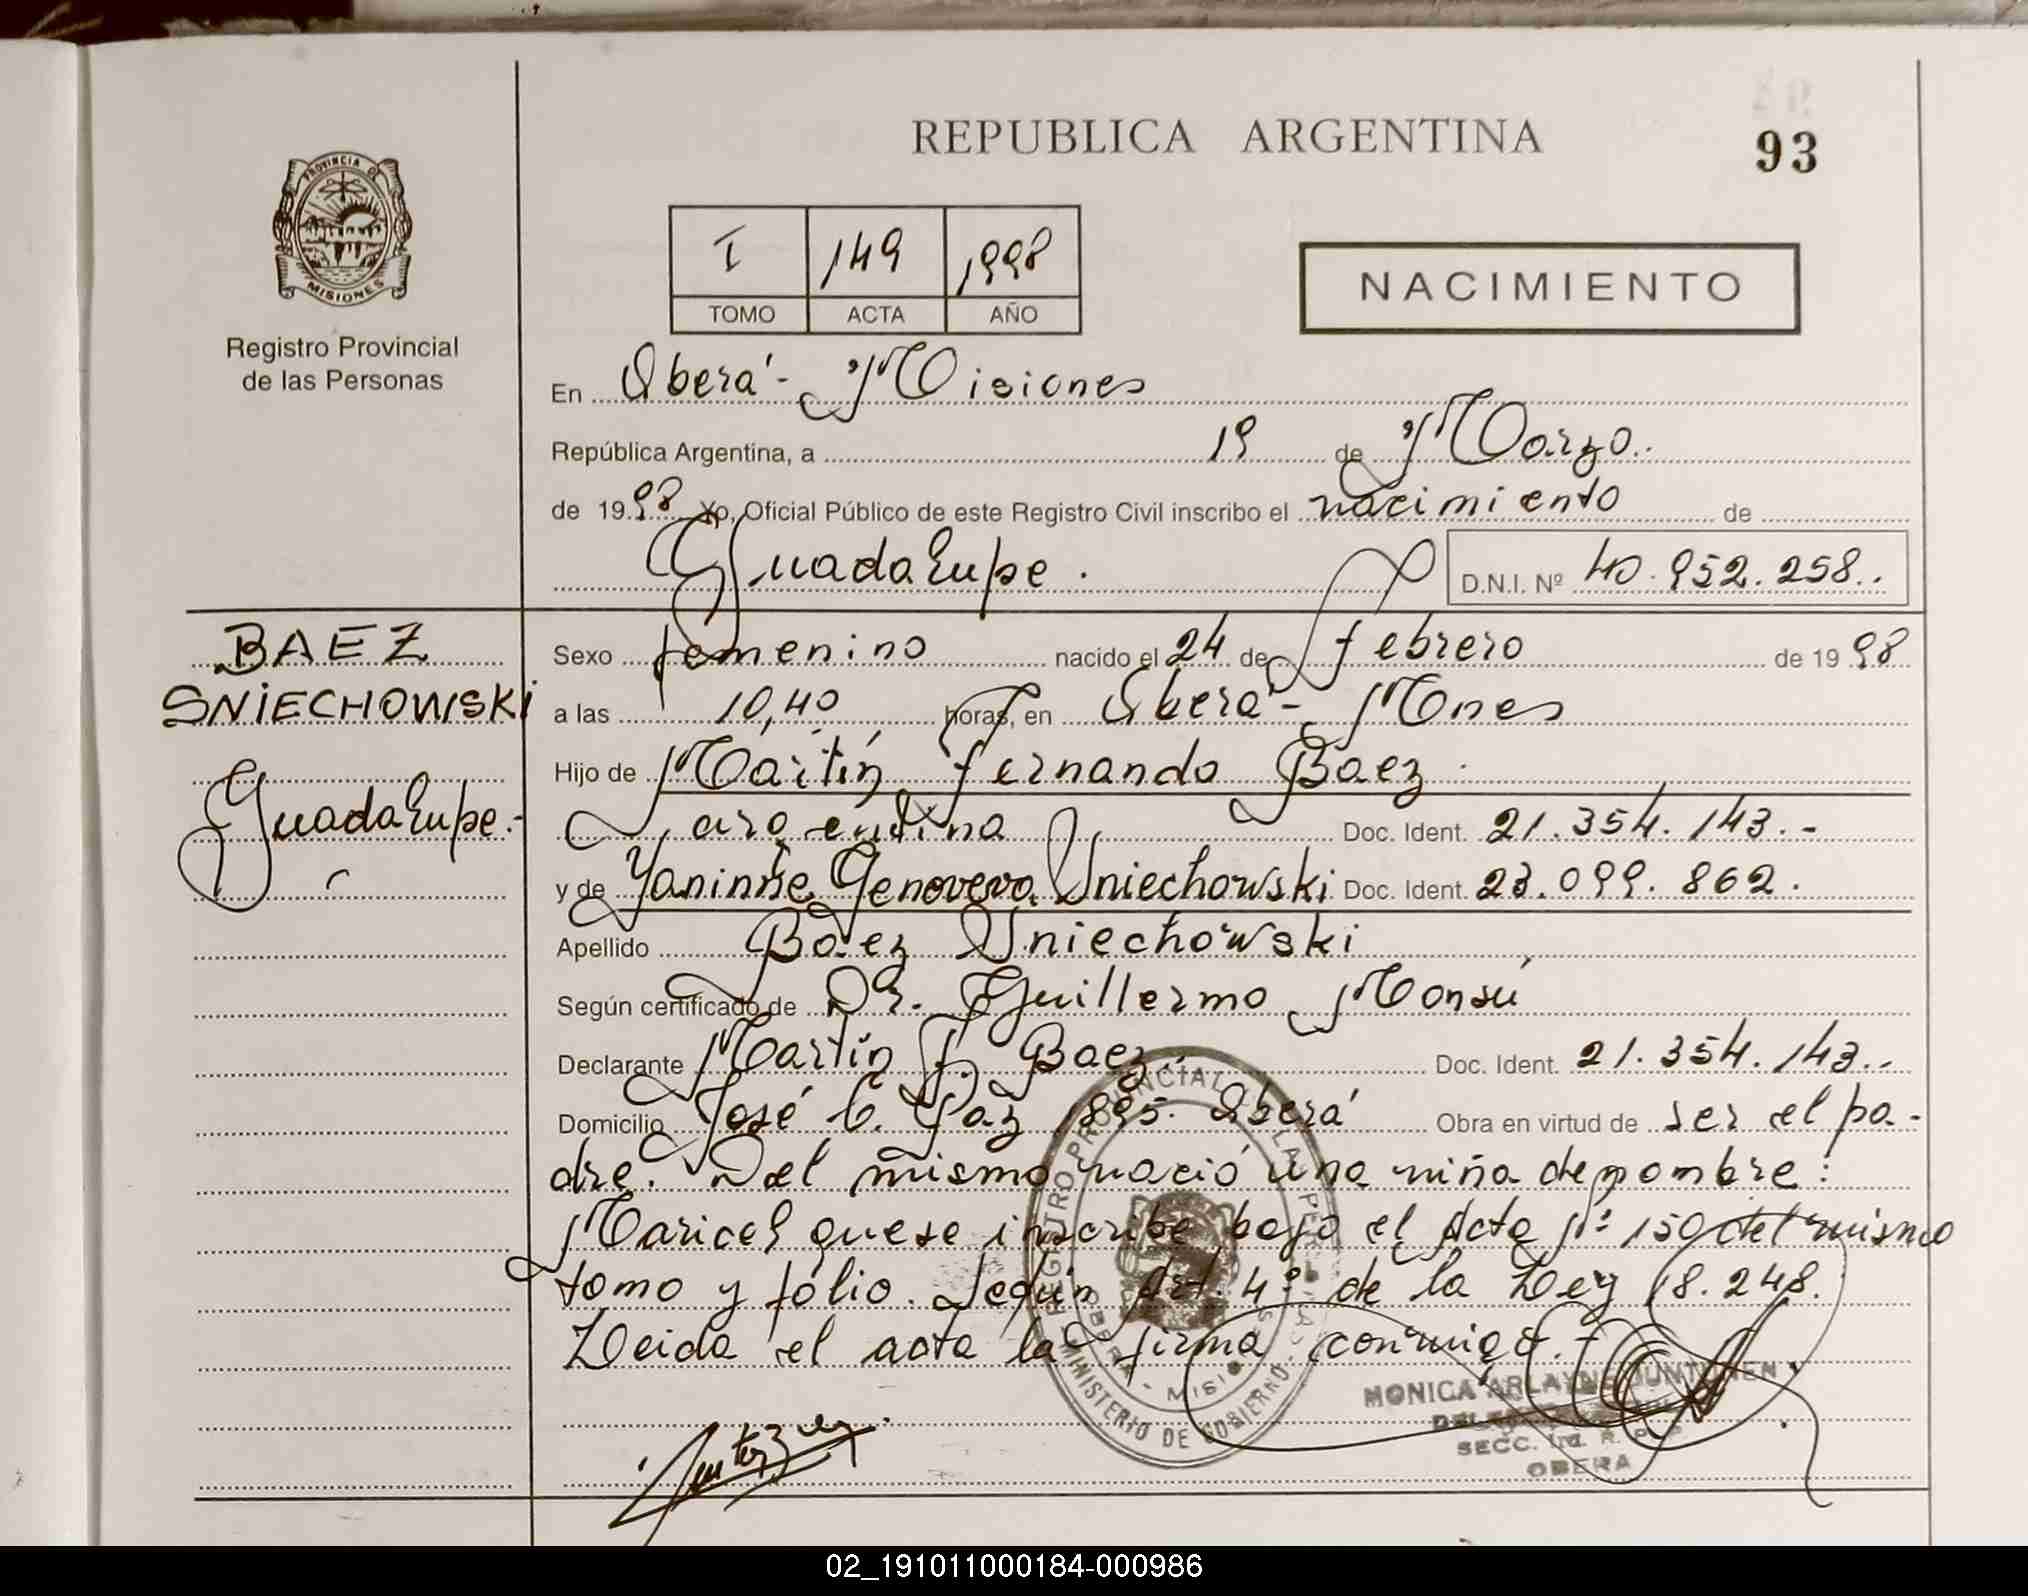 REPUBLICA ARGENTINA
93
PROVINCIA DE
MISIONES
Registro Provincial
de las Personas
I 149 1998
TOMO ACTA AÑO
NACIMIENTO
En Oberá - Misiones
República Argentina, a 19 de Marzo.
de 19 98 Yo, Oficial Público de este Registro Civil inscribo el nacimiento de
Guadalupe. D.N.I. Nº 40.952.258..
BAEZ
SNIECHOWSKI
Guadalupe.-
Sexo femenino nacido el 24 de febrero de 19 98
a las 10,40 horas, en Oberá - Mnes
Hijo de Martín Fernando Baez
argentina Doc. Ident. 21.354.143.-
y de Genoveva Sniechowski Doc. Ident. 23.099.862.
Apellido Báez Sniechowski
Según certificado de Dr. Guillermo Monsú
Declarante Martín F. Baez. Doc. Ident. 21.354.143..
Domicilio José C. Paz 1895. Oberá Obra en virtud de ser el pa-
dre. Del mismo nació una niña de nombre:
Maricel que se inscribe bajo el Acta Nº 150 del mismo
tomo y folio. Según Art. 4º de la Ley 18.248.
Leida el acta la firma conmigo.-
REGISTRO PROVINCIAL DE LAS PERSONAS
MINISTERIO DE GOBIERNO
OBERA - MISIONES
MONICA
SECC. R. P.
OBERA
02_191011000184-000986